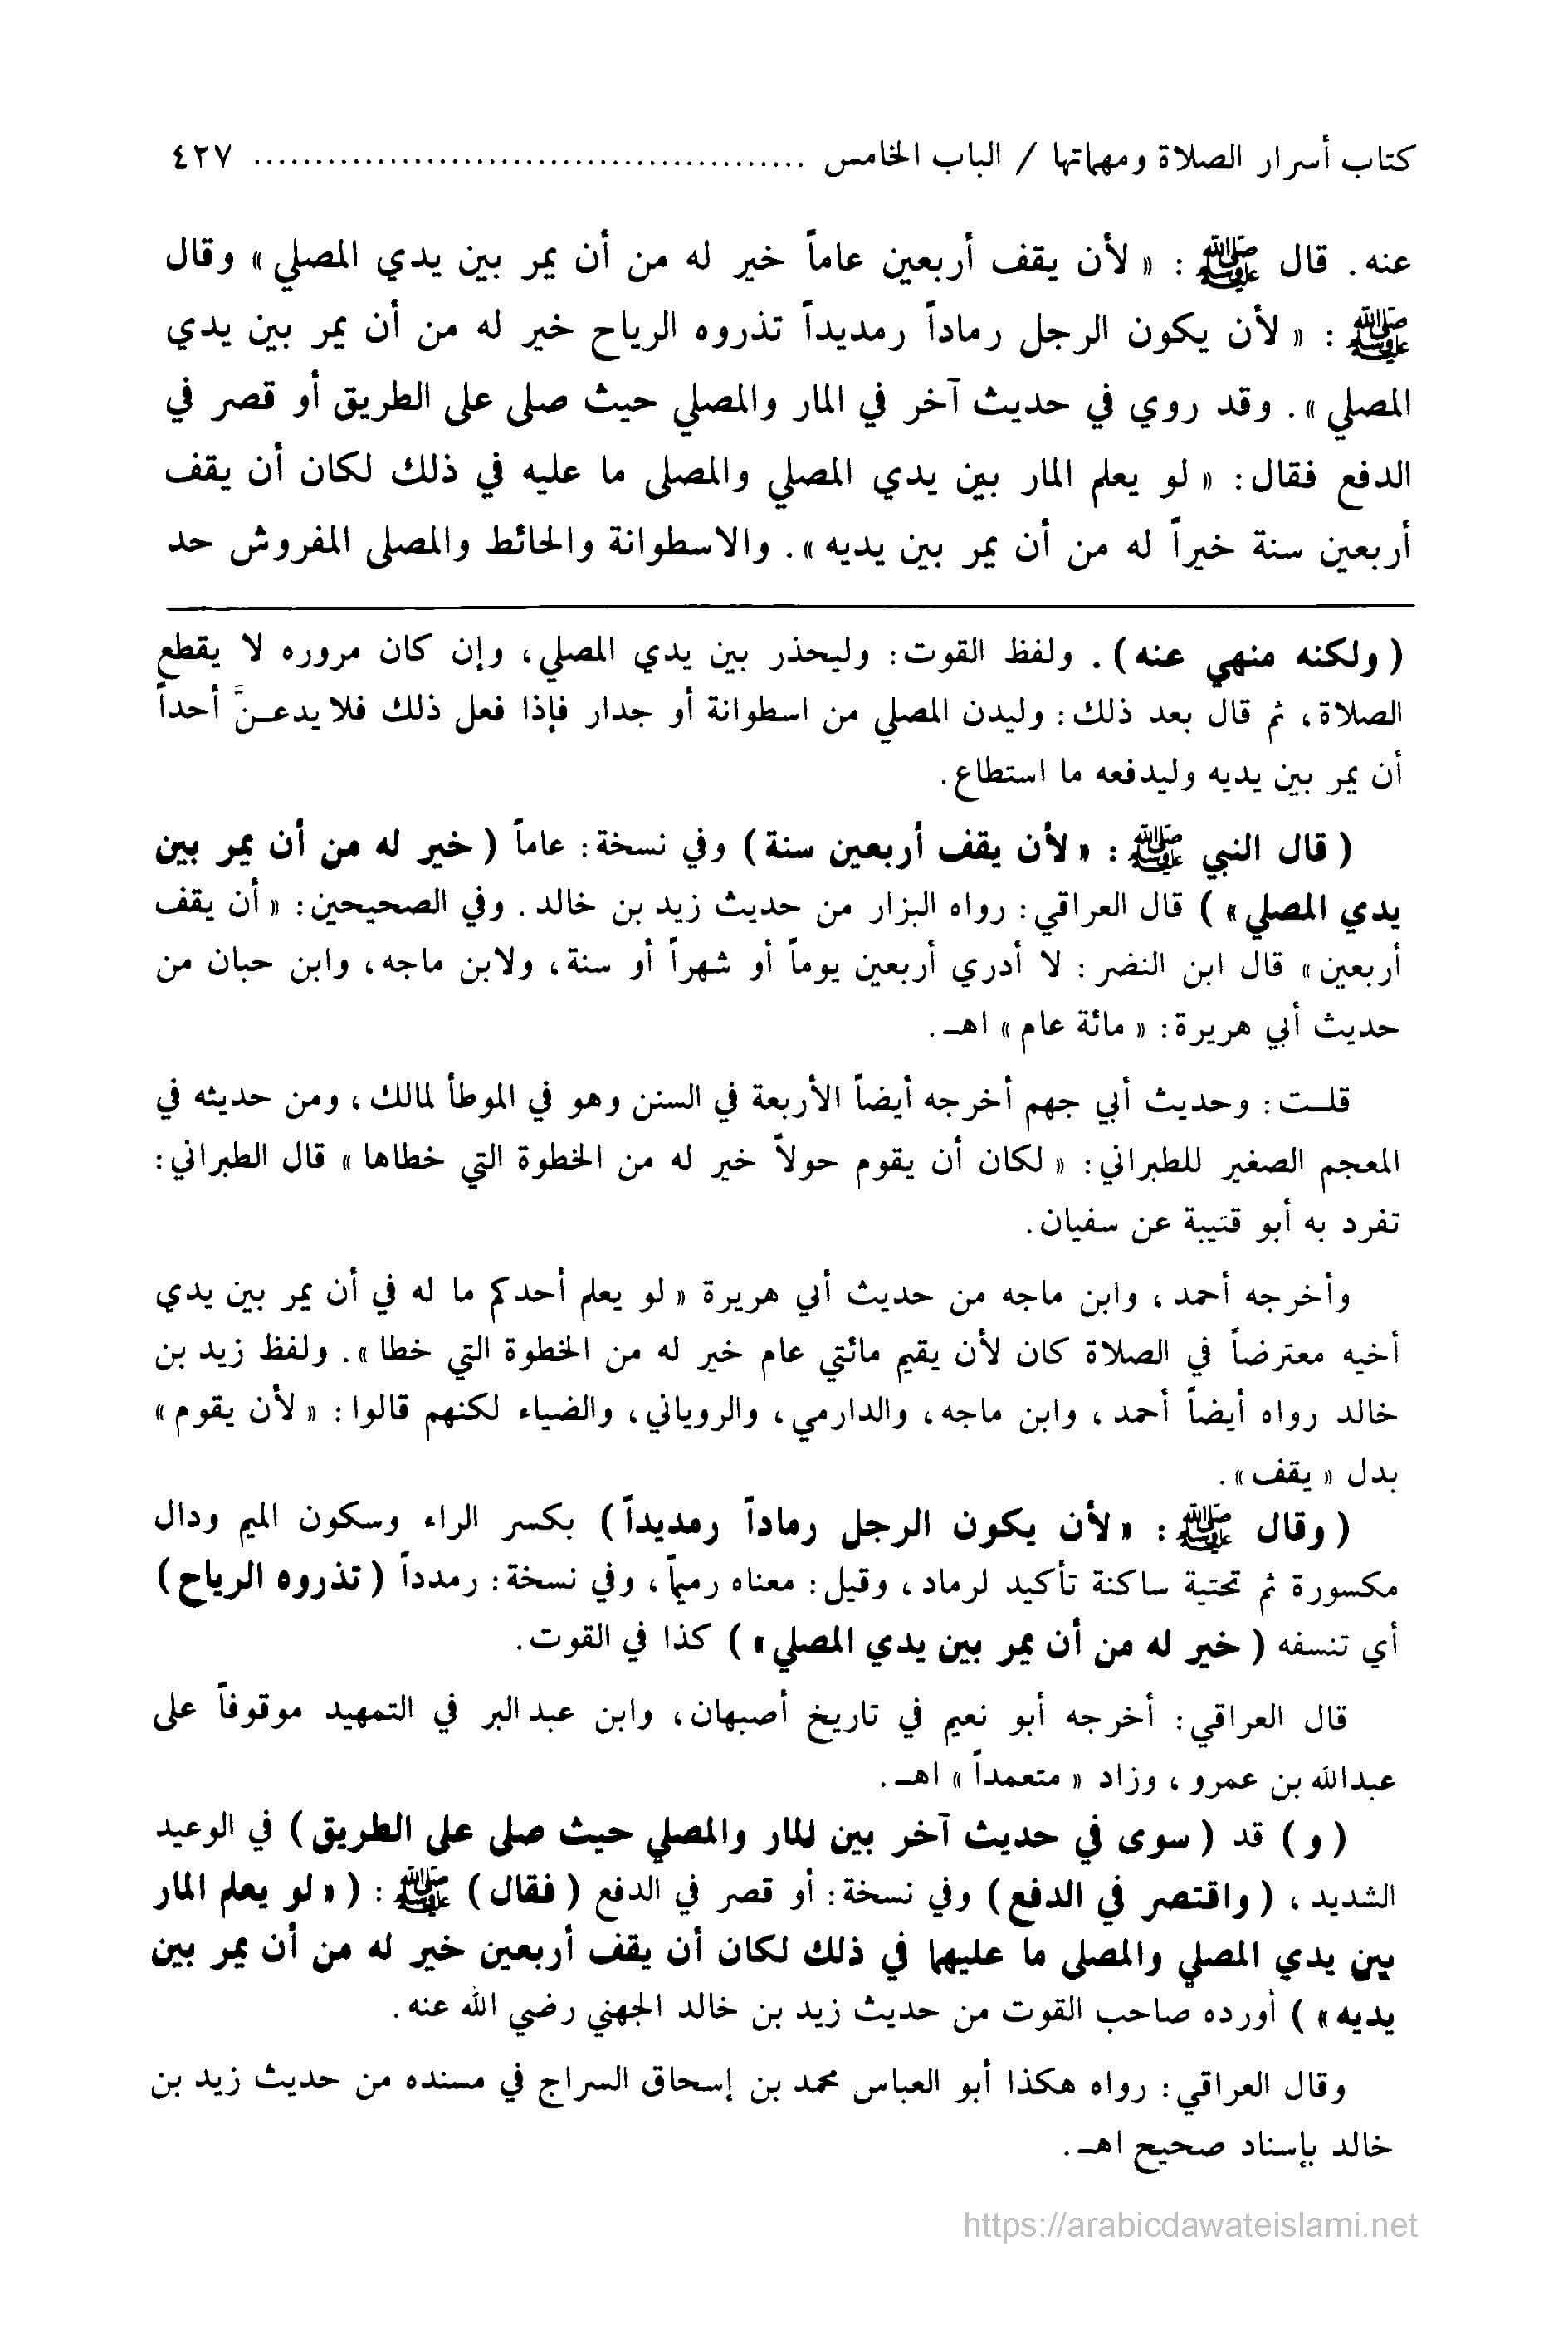 كتاب أسرار الصلاة ومهماتها / الباب الخامس .............................................. ٤٢٧
عنه. قال ﷺ : « لأن يقف أربعين عاماً خير له من أن يمر بين يدي المصلي » وقال
ﷺ : « لأن يكون الرجل رماداً رمديداً تذروه الرياح خير له من أن يمر بين يدي
المصلي ». وقد روي في حديث آخر في المار والمصلي حيث صلى على الطريق أو قصر في
الدفع فقال: « لو يعلم المار بين يدي المصلي والمصلى ما عليه في ذلك لكان أن يقف
أربعين سنة خيراً له من أن يمر بين يديه ». والاسطوانة والحائط والمصلى المفروش حد
( ولكنه منهي عنه ). ولفظ القوت: وليحذر بين يدي المصلي، وإن كان مروره لا يقطع
الصلاة، ثم قال بعد ذلك: وليدن المصلي من اسطوانة أو جدار فإذا فعل ذلك فلا يدعـنَّ أحداً
أن يمر بين يديه وليدفعه ما استطاع.
( قال النبي ﷺ : « لأن يقف أربعين سنة ) وفي نسخة: عاماً ( خير له من أن يمر بين
يدي المصلي » ) قال العراقي: رواه البزار من حديث زيد بن خالد. وفي الصحيحين: « أن يقف
أربعين » قال ابن النضر: لا أدري أربعين يوماً أو شهراً أو سنة، ولابن ماجه، وابن حبان من
حديث أبي هريرة: « مائة عام » اهـ.
قلـت: وحديث أبي جهم أخرجه أيضاً الأربعة في السنن وهو في الموطأ لمالك، ومن حديثه في
المعجم الصغير للطبراني: « لكان أن يقوم حولاً خير له من الخطوة التي خطاها » قال الطبراني:
تفرد به أبو قتيبة عن سفيان.
وأخرجه أحمد، وابن ماجه من حديث أبي هريرة « لو يعلم أحدكم ما له في أن يمر بين يدي
أخيه معترضاً في الصلاة كان لأن يقيم مائتي عام خير له من الخطوة التي خطا ». ولفظ زيد بن
خالد رواه أيضاً أحمد، وابن ماجه، والدارمي، والروياني، والضياء لكنهم قالوا: « لأن يقوم »
بدل « يقف ».
( وقال ﷺ : « لأن يكون الرجل رماداً رمديداً ) بكسر الراء وسكون الميم ودال
مكسورة ثم تحتية ساكنة تأكيد لرماد، وقيل: معناه رميماً، وفي نسخة: رمدداً ( تذروه الرياح )
أي تنسفه ( خير له من أن يمر بين يدي المصلي » ) كذا في القوت.
قال العراقي: أخرجه أبو نعيم في تاريخ أصبهان، وابن عبد البر في التمهيد موقوفاً على
عبدالله بن عمرو، وزاد « متعمداً » اهـ.
( و ) قد ( سوى في حديث آخر بين المار والمصلي حيث صلى على الطريق ) في الوعيد
الشديد، ( واقتصر في الدفع ) وفي نسخة: أو قصر في الدفع ( فقال ) ﷺ : ( « لو يعلم المار
بين يدي المصلي والمصلى ما عليهما في ذلك لكان أن يقف أربعين خير له من أن يمر بين
يديه » ) أورده صاحب القوت من حديث زيد بن خالد الجهني رضي الله عنه.
وقال العراقي: رواه هكذا أبو العباس محمد بن إسحاق السراج في مسنده من حديث زيد بن
خالد بإسناد صحيح اهـ.
https://arabicdawateislami.net